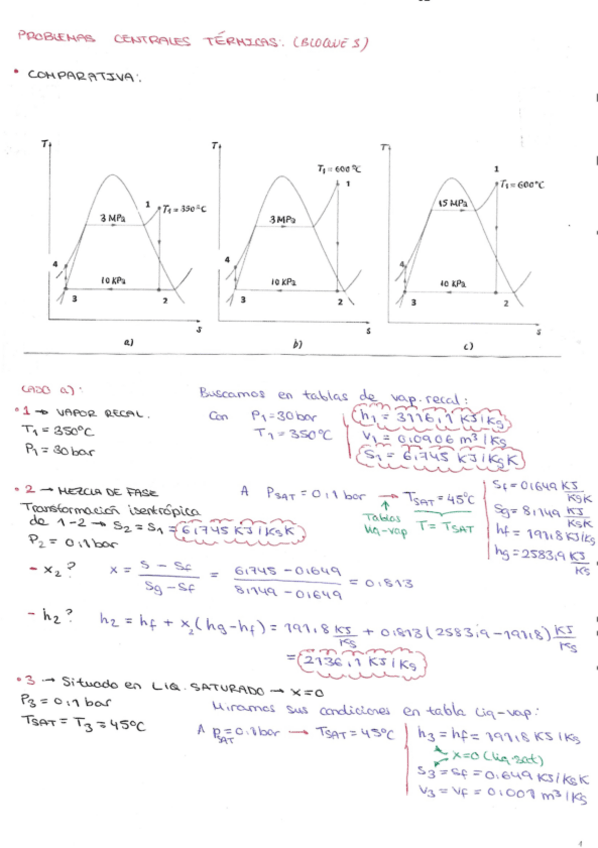 PROBLEMAS CENTRALES TÉRMICAS: (BLOQUE 3)
• COMPARATIVA:
T T T
T₁ = 600 °C 1
1 T₁ = 350 °C 1 T₁ = 600°C
3 MPa 3 MPa 15 MPa
4 4 4
10 KPa 10 KPa 10 KPa
3 2 3 2 3 2
s s s
a) b) c)
CASO a):
Buscamos en tablas de vap. recal:
• 1 → VAPOR RECAL.
T₁ = 350°C
P₁ = 30 bar
Con P₁ = 30 bar
T₁ = 350°C
h₁ = 3116,1 KJ/Kg
V₁ = 0,0906 m³/Kg
S₁ = 6,745 KJ/KgK
• 2 → MEZCLA DE FASE
Transformación isentrópica
de 1-2 → S₂ = S₁ = 6,745 KJ/KgK
P₂ = 0,1 bar
A P_SAT = 0,1 bar → T_SAT = 45°C
↑
Tablas
liq-vap
T = T_SAT
Sf = 0,649 KJ/KgK
Sg = 8,149 KJ/KgK
hf = 191,8 KJ/Kg
hg = 2583,9 KJ/Kg
- x₂? x = (S - Sf)/(Sg - Sf) = (6,745 - 0,649)/(8,149 - 0,649) = 0,813
- h₂? h₂ = hf + x₂(hg - hf) = 191,8 KJ/Kg + 0,813 (2583,9 - 191,8) KJ/Kg
= 2136,1 KJ/Kg
• 3 → Situado en LIQ. SATURADO → x = 0
P₃ = 0,1 bar
T_SAT = T₃ = 45°C
Miramos sus condiciones en tabla Liq-vap:
A P_SAT = 0,1 bar → T_SAT = 45°C
h₃ = hf = 191,8 KJ/Kg
x = 0 (liq sat)
S₃ = Sf = 0,649 KJ/KgK
V₃ = Vf = 0,001 m³/Kg
1